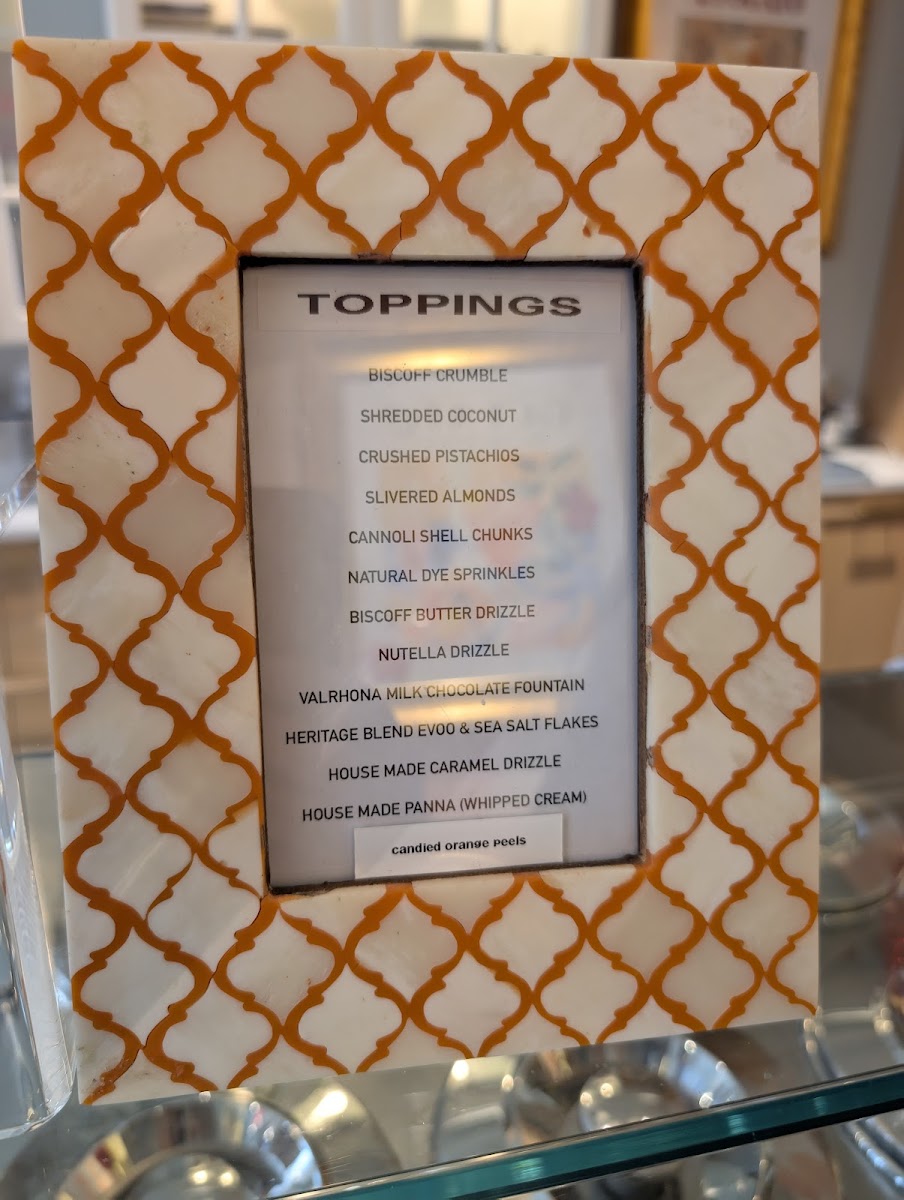 TOPPINGS
BISCOFF CRUMBLE
SHREDDED COCONUT
CRUSHED PISTACHIOS
SLIVERED ALMONDS
CANNOLI SHELL CHUNKS
NATURAL DYE SPRINKLES
BISCOFF BUTTER DRIZZLE
NUTELLA DRIZZLE
VALRHONA MILK CHOCOLATE FOUNTAIN
HERITAGE BLEND EVOO & SEA SALT FLAKES
HOUSE MADE CARAMEL DRIZZLE
HOUSE MADE PANNA (WHIPPED CREAM)
candied orange Peels